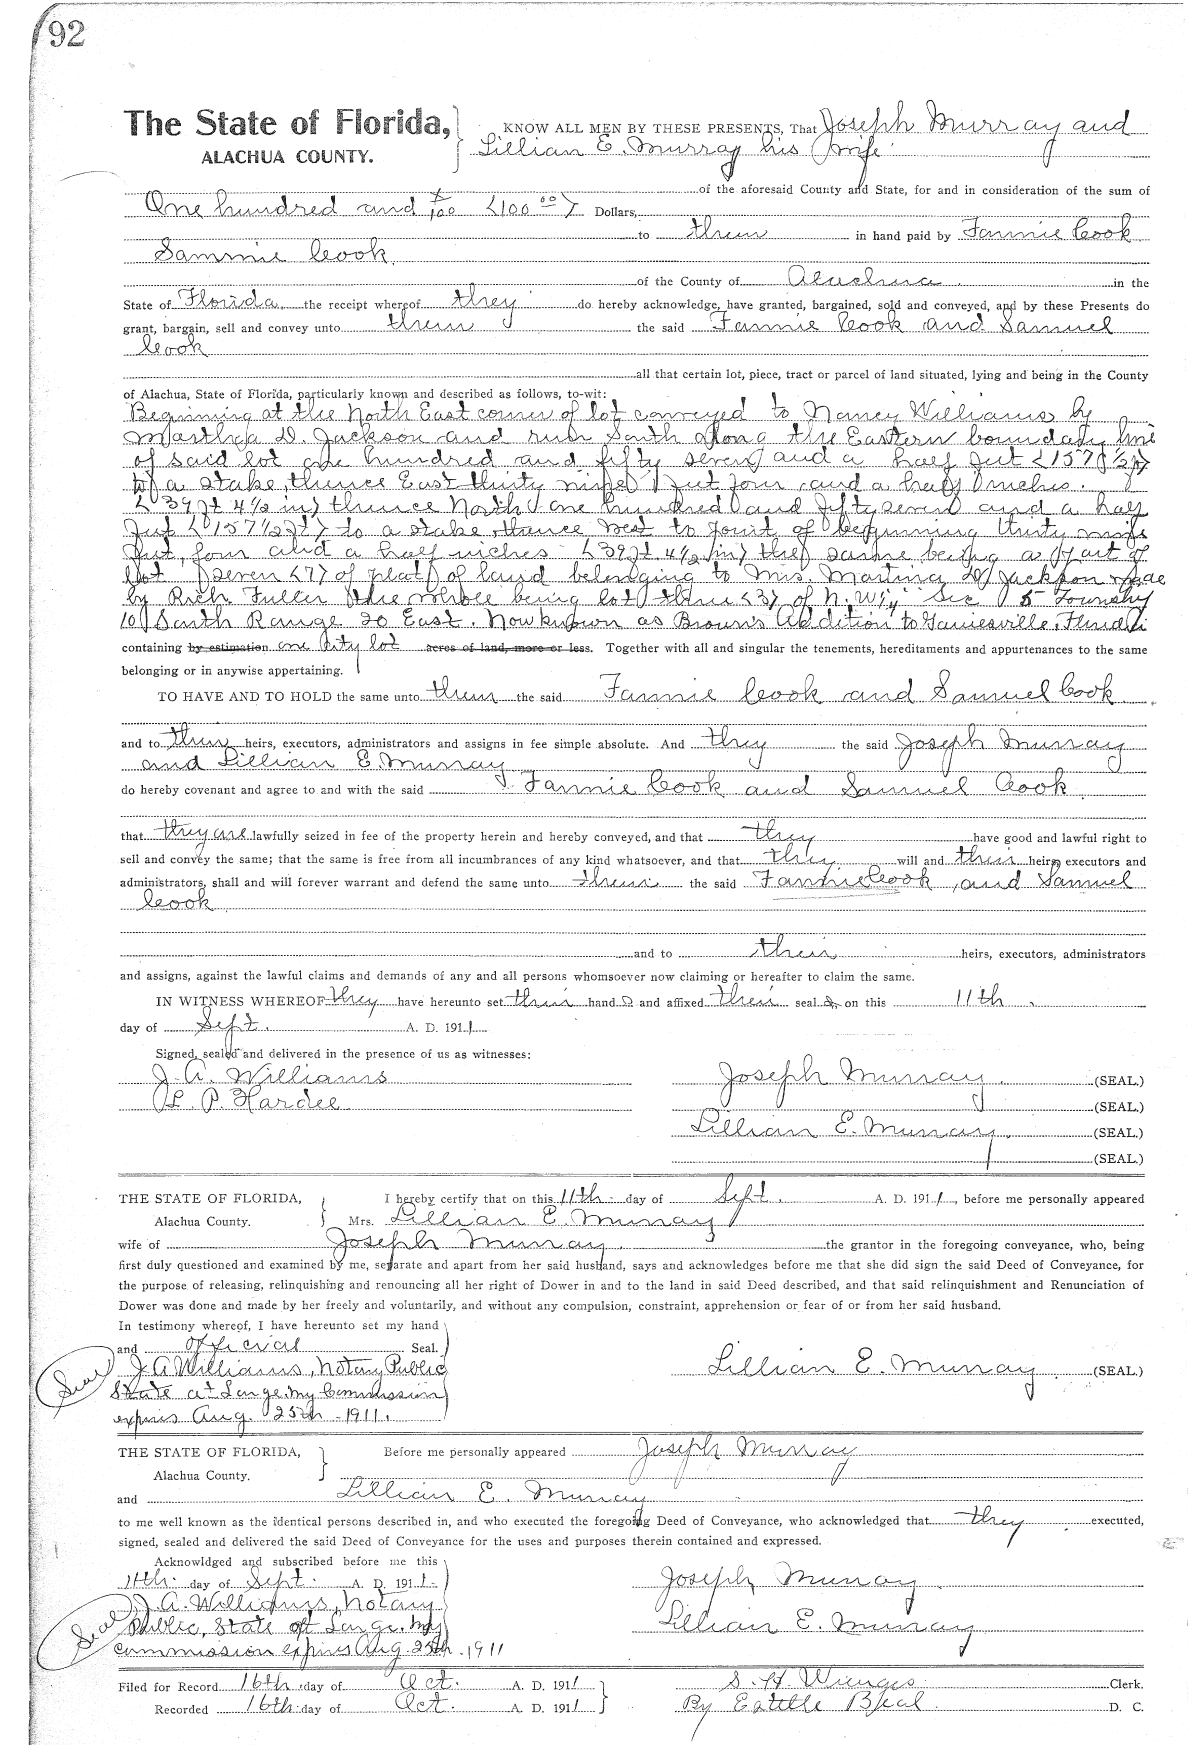 92
The State of Florida, KNOW ALL MEN BY THESE PRESENTS, That Joseph Murray and
ALACHUA COUNTY. Lillian E. Murray his wife
of the aforesaid County and State, for and in consideration of the sum of
One hundred and x/100 <100 00> Dollars,
to them in hand paid by Fannie Cook
Sammie Cook
of the County of Alachua in the
State of Florida, the receipt whereof they do hereby acknowledge, have granted, bargained, sold and conveyed, and by these Presents do
grant, bargain, sell and convey unto them the said Fannie Cook and Samuel
Cook
all that certain lot, piece, tract or parcel of land situated, lying and being in the County
of Alachua, State of Florida, particularly known and described as follows, to-wit:
Beginning at the North East corner of lot conveyed to Nancy Williams by
Martha D. Jackson and run South along the Eastern boundary line
of said lot one hundred and fifty seven and a half feet <157 1/2 ft>
to a stake, thence East thirty nine feet four and a half inches.
<39 ft 4 1/2 in> thence North one hundred and fifty seven and a half
feet <157 1/2 ft> to a stake, thence West to point of beginning thirty nine
feet, four and a half inches <39 ft 4 1/2 in> the same being a part of
lot seven <7> of plat of land belonging to Mrs. Martha D Jackson made
by Rich. Fuller the whole being lot three <3> of N.W 1/4 Sec 5 Township
10 South Range 20 East. Now known as Brown's Addition to Gainesville, Florida
containing by estimation one City lot acres of land, more or less. Together with all and singular the tenements, hereditaments and appurtenances to the same
belonging or in anywise appertaining.
TO HAVE AND TO HOLD the same unto them the said Fannie Cook and Samuel Cook
and to their heirs, executors, administrators and assigns in fee simple absolute. And they the said Joseph Murray
and Lillian E. Murray
do hereby covenant and agree to and with the said Fannie Cook and Samuel Cook
that they are lawfully seized in fee of the property herein and hereby conveyed, and that they have good and lawful right to
sell and convey the same; that the same is free from all incumbrances of any kind whatsoever, and that they will and their heirs, executors and
administrators, shall and will forever warrant and defend the same unto them the said Fannie Cook, and Samuel
Cook
and to their heirs, executors, administrators
and assigns, against the lawful claims and demands of any and all persons whomsoever now claiming or hereafter to claim the same.
IN WITNESS WHEREOF they have hereunto set their hand s and affixed their seal s on this 11th
day of Sept. A. D. 1911
Signed, sealed and delivered in the presence of us as witnesses:
J. A. Williams Joseph Murray. (SEAL.)
L. P. Hardee (SEAL.)
Lillian E. Murray. (SEAL.)
(SEAL.)
THE STATE OF FLORIDA, I hereby certify that on this 11th day of Sept. A. D. 1911, before me personally appeared
Alachua County. Mrs. Lillian E. Murray
wife of Joseph Murray. the grantor in the foregoing conveyance, who, being
first duly questioned and examined by me, separate and apart from her said husband, says and acknowledges before me that she did sign the said Deed of Conveyance, for
the purpose of releasing, relinquishing and renouncing all her right of Dower in and to the land in said Deed described, and that said relinquishment and Renunciation of
Dower was done and made by her freely and voluntarily, and without any compulsion, constraint, apprehension or fear of or from her said husband.
In testimony whereof, I have hereunto set my hand
and official Seal.
Seal J. A Williams, Notary Public Lillian E. Murray. (SEAL)
State at Large. My Commission
expires Aug. 25th -1911.
THE STATE OF FLORIDA, Before me personally appeared Joseph Murray
Alachua County.
and Lillian E. Murray
to me well known as the identical persons described in, and who executed the foregoing Deed of Conveyance, who acknowledged that they executed,
signed, sealed and delivered the said Deed of Conveyance for the uses and purposes therein contained and expressed.
Acknowldged and subscribed before me this
11th. day of Sept. A. D. 1911. Joseph Murray.
Seal J. A. Williams, Notary
Public, State at Large. My Lillian E. Murray
commission expires Aug. 25th -1911
Filed for Record 16th day of Oct. A. D. 1911 S. H. Wienges. Clerk.
Recorded 16th day of Oct. A. D. 1911 By Estelle Beal. D. C.